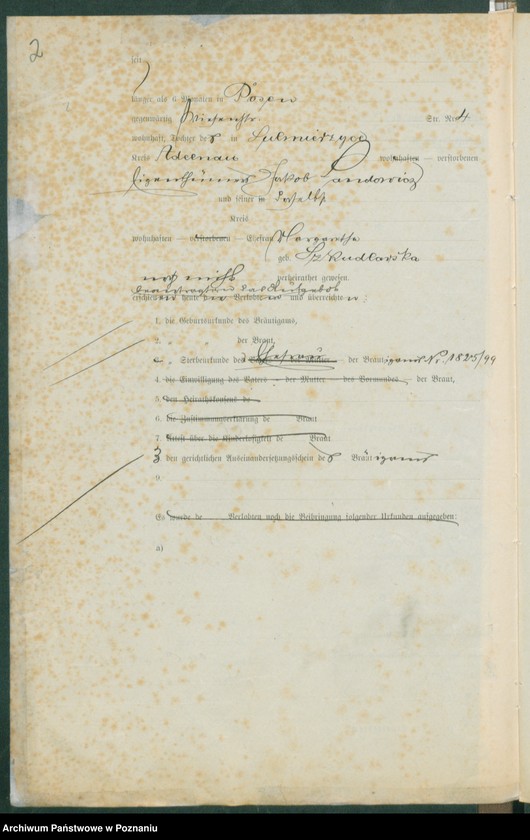 2
seit
länger als 6 Monaten in Posen
gegenwärtig Wiesenstr Str. Nr. 4
wohnhaft, Tochter des in Sulmierzyce
Kreis Adelnau wohnhaften — verstorbenen
Eigenthümers Jakob Landowicz
und seiner in daselbst
Kreis
wohnhaften — verstorbenen — Ehefrau Margaretha
geb. Szkudlarska
noch nicht verheirathet gewesen.
beantragten das Aufgebot
erschienen heute die Verlobten und überreichten:
1. die Geburtsurkunde des Bräutigams,
2. „ „ der Braut,
„ Sterbeurkunde der Ehefrau der Bräutigams Nr. 1825/99
4. die Einwilligung des Vaters — der Mutter — des Vormundes der Braut,
5. den Heirathskonsent de
6. die Zustimmungserklärung de Braut
7. Attest über die Kinderlosigkeit de Braut
3 den gerichtlichen Auseinandersetzungsschein des Bräutigams
9.
Es wurde de Verlobten noch die Beibringung folgender Urkunden aufgegeben:
a)
Archiwum Państwowe w Poznaniu